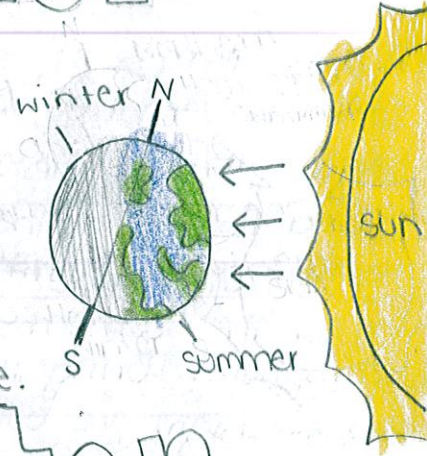 winter N
sun
S summer
e.